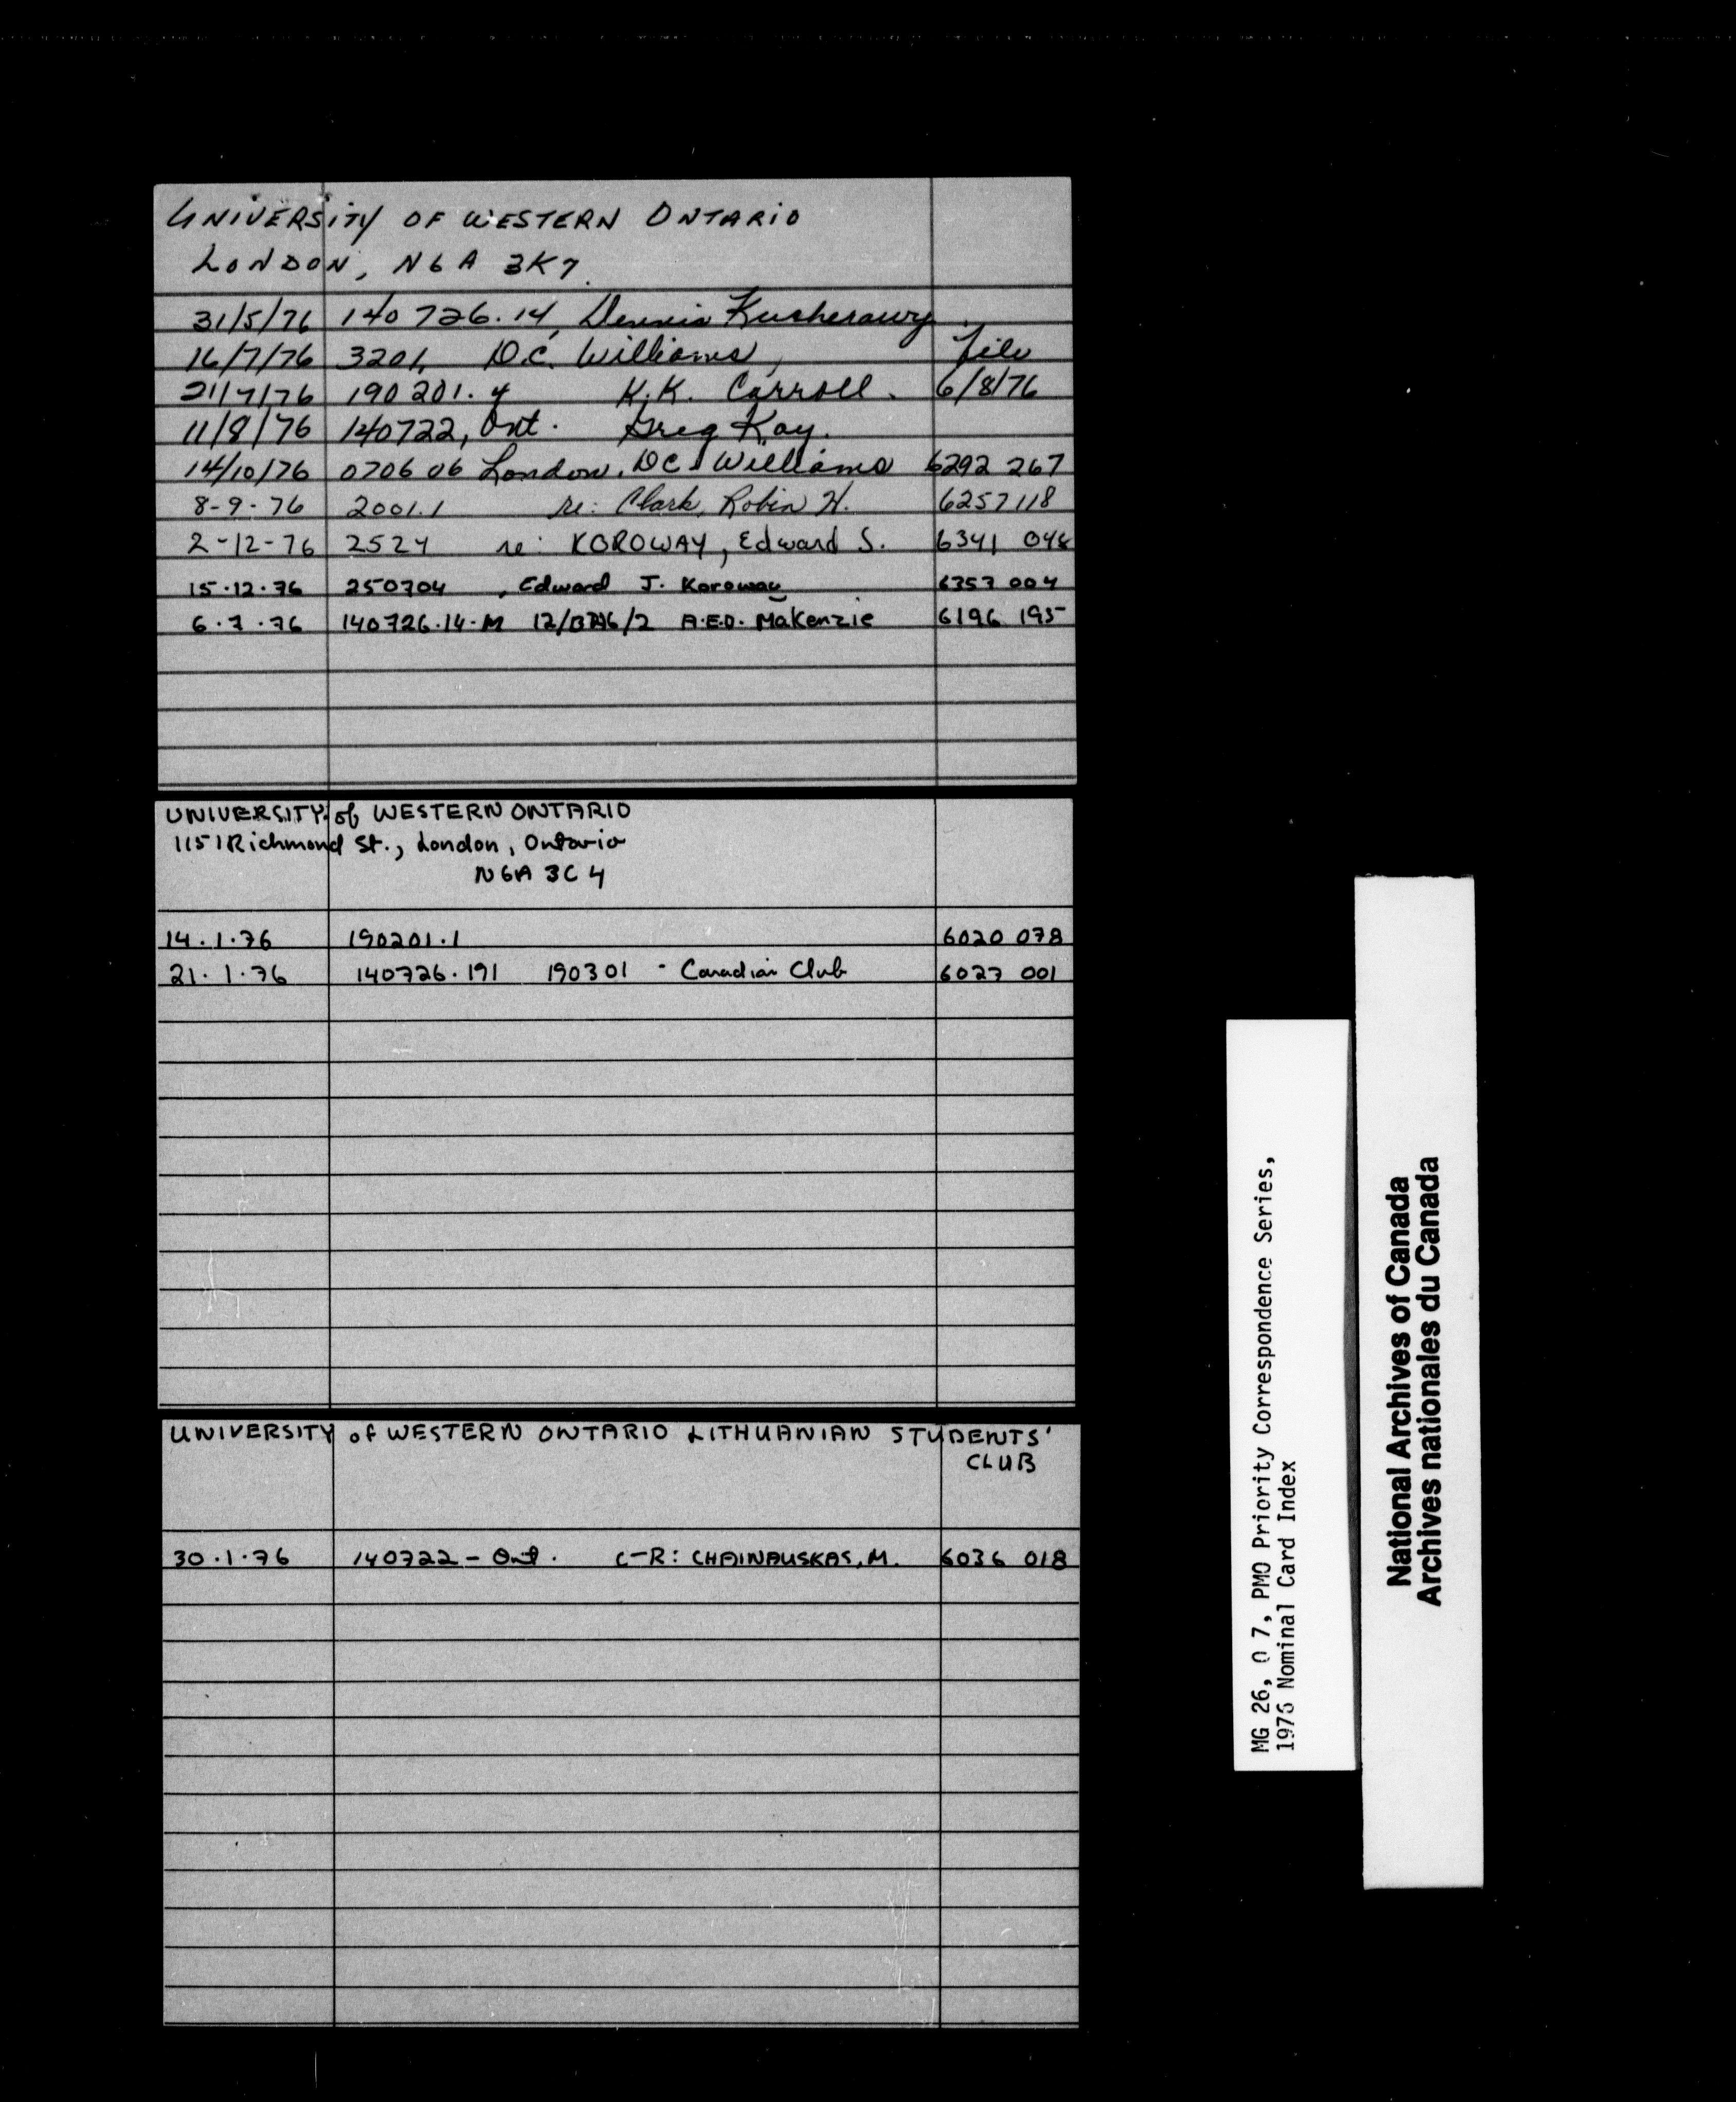 UNIVERSITY OF WESTERN ONTARIO
LONDON, N6A 3K7
31/5/76 140726.14, Dennis Kucherawy
16/7/76 3201, D.C. Williams, file
21/7/76 190201.4 K.K. Carroll. 6/8/76
11/8/76 140722, Ont. Greg Kay.
14/10/76 070606 London. DC Williams 6292 267
8-9-76 2001.1 re: Clark, Robin H. 6257118
2-12-76 2524 re: KOROWAY, Edward S. 6341 048
15.12.76 250704, Edward J. Koroway 6353 004
6.7.76 140726.14-M A.E.D. MaKenzie 6196 195
UNIVERSITY of WESTERN ONTARIO
1151 Richmond St., London, Ontario
N6A 3C4
14.1.76 190201.1 6020 078
21.1.76 140726.191 190301 - Canadian Club 6027 001
UNIVERSITY of WESTERN ONTARIO LITHUANIAN STUDENTS'
CLUB
30.1.76 140722 - Ont. C-R: CHAINAUSKAS, M. 6036 018
MG 26, O 7, PMO Priority Correspondence Series,
1976 Nominal Card Index
National Archives of Canada
Archives nationales du Canada